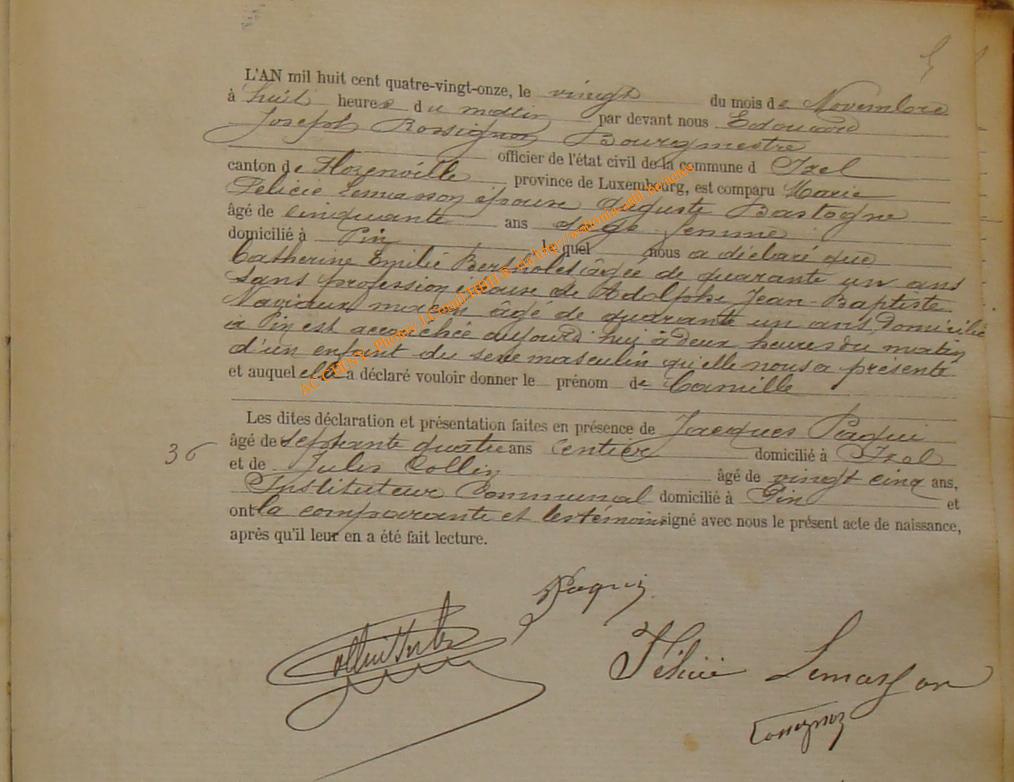 L'AN mil huit cent quatre-vingt-onze, le vingt du mois de Novembre
à huit heures du matin par devant nous Edouard
Joseph Rossignon Bourgmestre
officier de l'état civil de la commune d Izel
canton de Florenville province de Luxembourg, est comparu Marie
Félicie Lemasson épouse Auguste Bastogne
âgé de cinquante ans sage femme
domicilié à Pin lequel nous a déclaré que
Catherine Emilie âgée de quarante un ans
sans profession épouse de Adolphe Jean-Baptiste
maçon âgé de quarante un ans domicilié
à Pin est accouchée aujourd'hui à deux heures du matin
d'un enfant du sexe masculin qu'elle nous a présenté
et auquel elle a déclaré vouloir donner le prénom de Camille
Les dites déclaration et présentation faites en présence de Jacques Paqui
âgé de septante quatre ans rentier domicilié à Izel
36
et de Jules Collin âgé de vingt cinq ans,
Instituteur Communal domicilié à Pin et
ont la comparante et les témoins signé avec nous le présent acte de naissance,
après qu'il leur en a été fait lecture.
Paqui
Félicie Lemasson